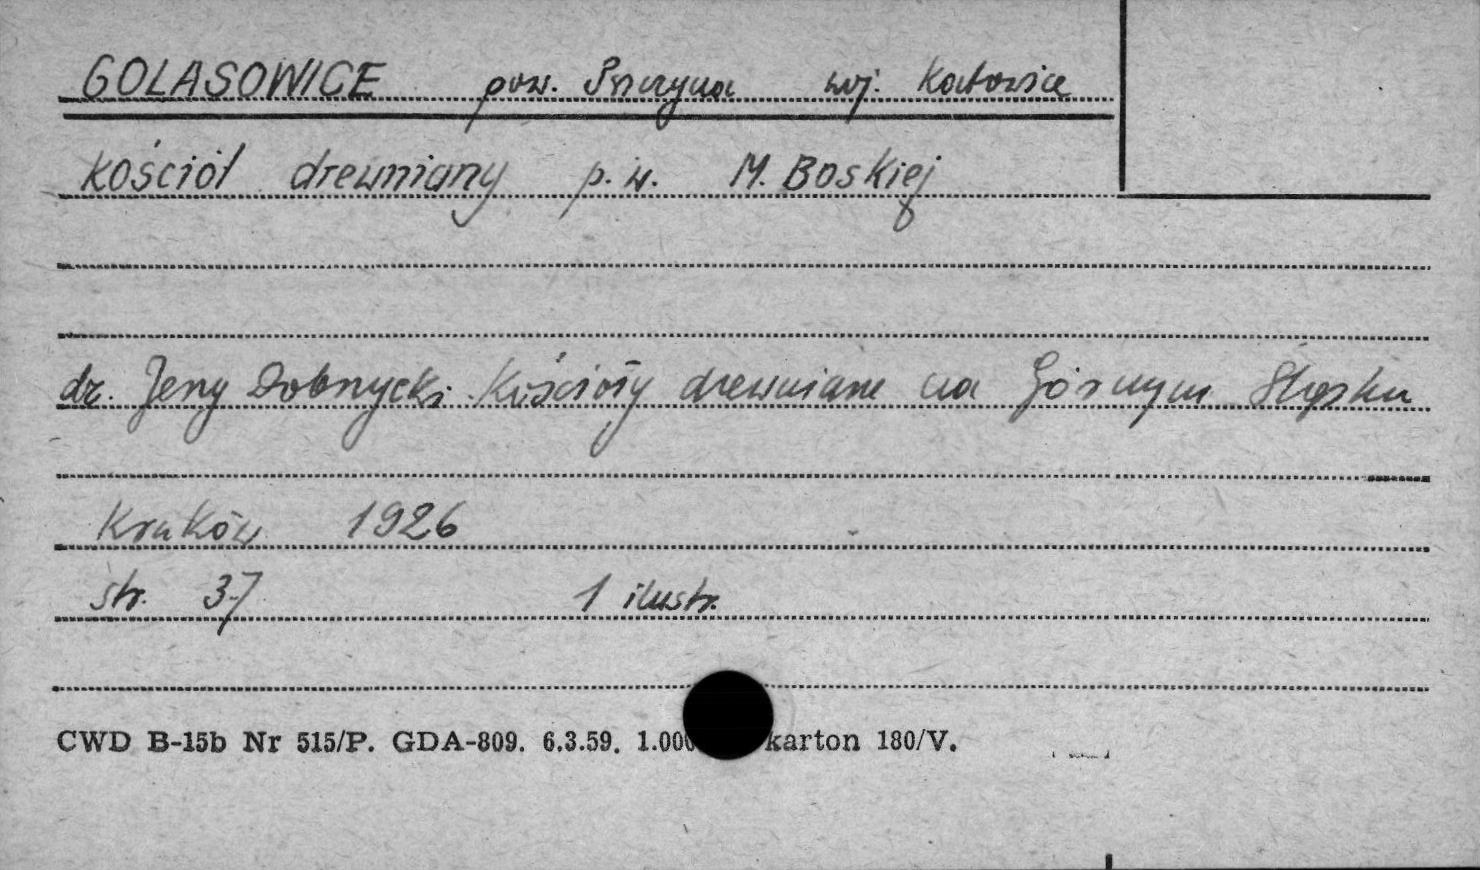 GOLASOWICE pow. Pszczyna woj. Katowice
Kościół drewniany p.w. M. Boskiej
dr. Jerzy Dobrzycki. Kościoły drewniane na Górnym Śląsku
Kraków 1926
str. 37 1 ilustr.
CWD B-15b Nr 515/P. GDA-809. 6.3.59. 1.000 karton 180/V.